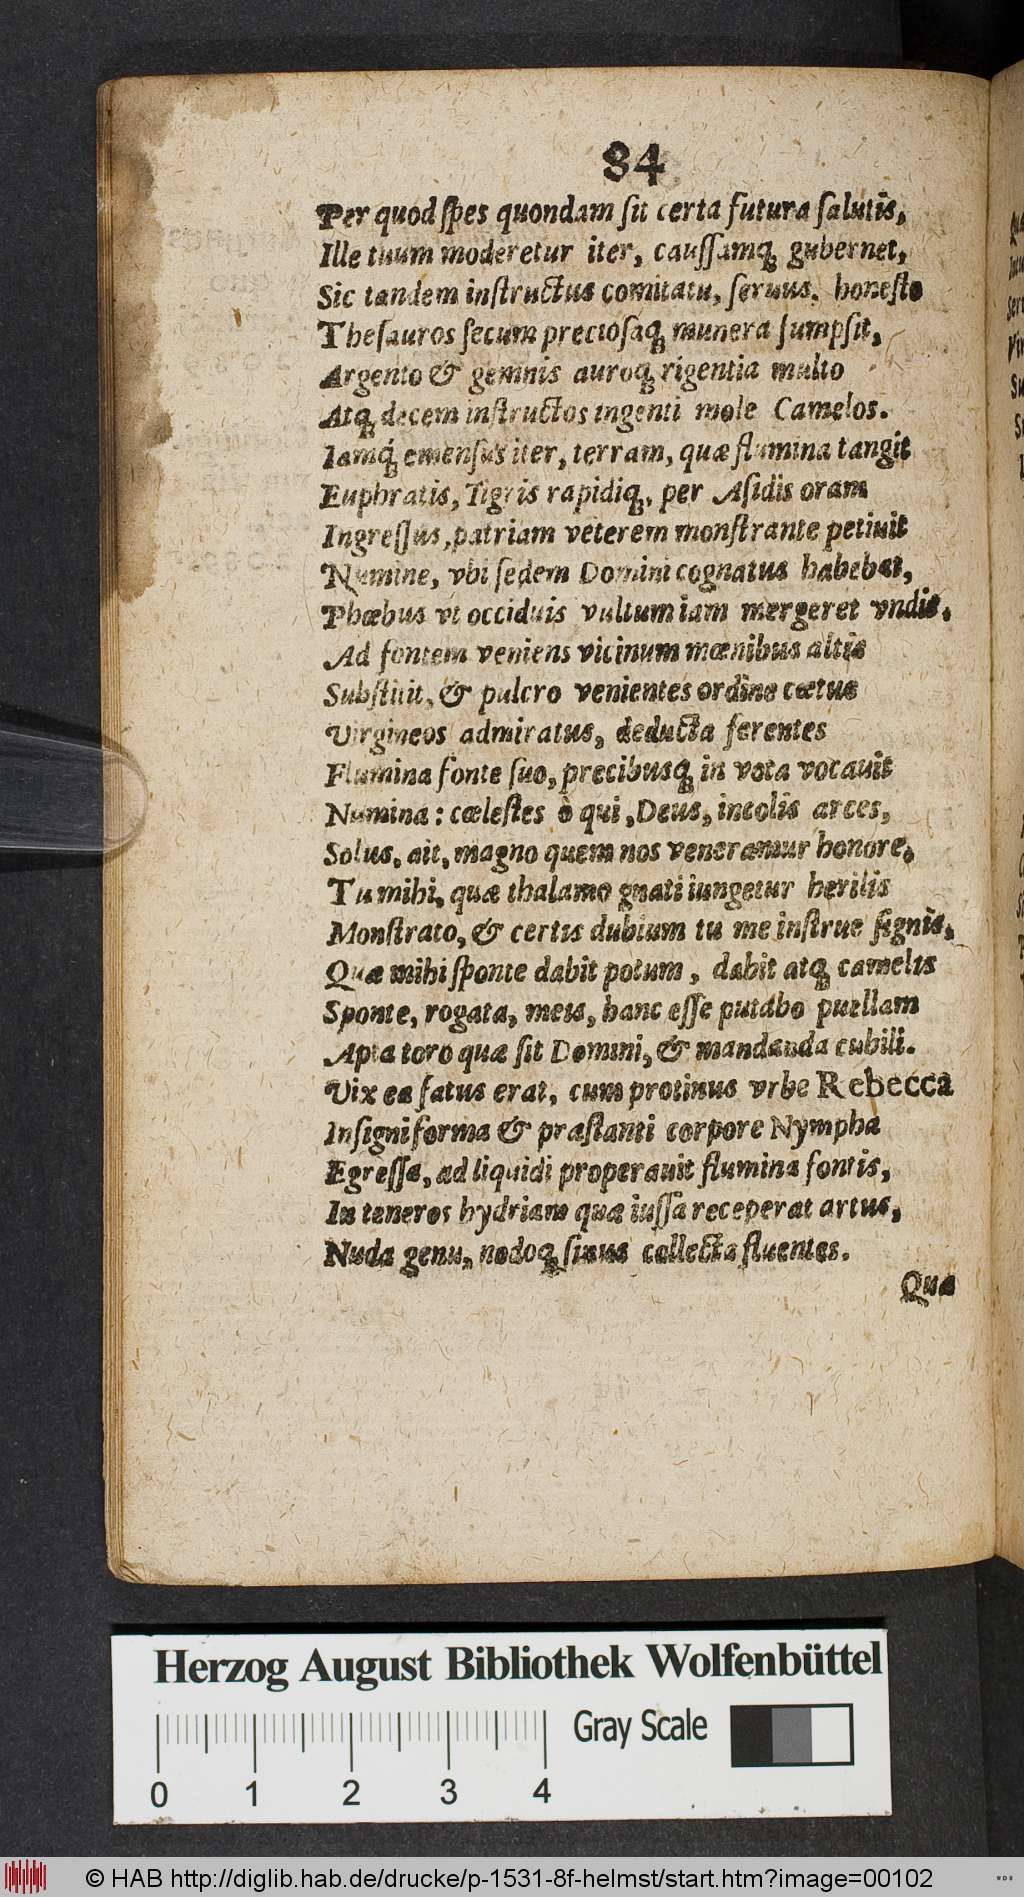 84
Per quod ſpes quondam ſit certa futura ſalutis,
Ille tuum moderetur iter, cauſſamq́; gubernet,
Sic tandem inſtructus comitatu, ſeruus, honeſto
Theſauros ſecum precioſaq; munera ſumpſit,
Argento & gemnis auroq; rigentia multo
Atq; decem inſtructos ingenti mole Camelos.
Iamq́; emenſus iter, terram, quæ flumina tangit
Euphratis, Tigris rapidiq;, per Aſidis oram
Ingreſſus, patriam veterem monſtrante petiuit
Numine, vbi ſedem Domini cognatus habebat,
Phœbus vt occiduis vultum iam mergeret vndis.
Ad fontem veniens vicinum mœnibus altis
Subſtitit, & pulcro venientes ordine cœtus
Virgineos admiratus, deducta ferentes
Flumina fonte ſuo, precibusq; in vota vocauit
Numina: cæleſtes ò qui, Deus, incolis arces,
Solus, ait, magno quem nos veneramur honore,
Tu mihi, quæ thalamo gnati iungetur herilis
Monſtrato, & certis dubium tu me inſtrue ſignis,
Quæ mihi ſponte dabit potum, dabit atq; camelis
Sponte, rogata, meis, hanc eſſe putabo puellam
Apta toro quæ ſit Domini, & mandanda cubili.
Vix ea fatus erat, cum protinus vrbe Rebecca
Inſigni forma & præſtanti corpore Nympha
Egreſſa, ad liquidi properauit flumina fontis,
In teneros hydriam quæ iuſſa receperat artus,
Nuda genu, nodoq; ſinus collecta fluentes.
Quæ
Herzog August Bibliothek Wolfenbüttel
Gray Scale
0 1 2 3 4
© HAB http://diglib.hab.de/drucke/p-1531-8f-helmst/start.htm?image=00102